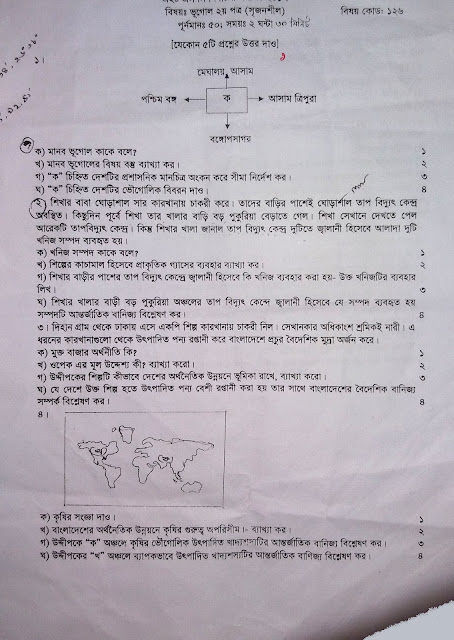 বিষয়ঃ ভূগোল ২য় পত্র (সৃজনশীল)
বিষয় কোড: ১২৬
পূর্নমানঃ ৫০; সময়ঃ ২ ঘন্টা ৩০ মিনিট
[যেকোন ৫টি প্রশ্নের উত্তর দাও]
১।
মেঘালয় আসাম
পশ্চিম বঙ্গ
ক
আসাম ত্রিপুরা
বঙ্গোপসাগর
ক) মানব ভূগোল কাকে বলে? ১
খ) মানব ভূগোলের বিষয় বস্তু ব্যাখ্যা কর। ২
গ) "ক" চিহ্নিত দেশটির প্রশাসনিক মানচিত্র অংকন করে সীমা নির্দেশ কর। ৩
ঘ) "ক" চিহ্নিত দেশটির ভৌগোলিক বিবরন দাও। ৪
২। শিখার বাবা ঘোড়াশাল সার কারখানায় চাকরী করে। তাদের বাড়ির পাশেই ঘোড়াশাল তাপ বিদ্যুৎ কেন্দ্র
অবস্থিত। কিছুদিন পূর্বে শিখা তার খালার বাড়ি বড় পুকুরিয়া বেড়াতে গেল। শিখা সেখানে দেখতে পেল
আরেকটি তাপবিদ্যুৎ কেন্দ্র। কিন্তু শিখার খালা জানাল তাপ বিদ্যুৎ কেন্দ্র দুটিতে জ্বালানী হিসেবে আলাদা দুটি
খনিজ সম্পদ ব্যবহৃত হয়।
ক) খনিজ সম্পদ কাকে বলে? ১
খ) শিল্পের কাচামাল হিসেবে প্রাকৃতিক গ্যাসের ব্যবহার ব্যাখ্যা কর। ২
গ) শিখার বাড়ীর পাশের তাপ বিদ্যুৎ কেন্দ্রে জ্বালানী হিসেবে কি খনিজ ব্যবহার করা হয়- উক্ত খনিজটির ব্যবহার
লিখ। ৩
ঘ) শিখার খালার বাড়ী বড় পুকুরিয়া অঞ্চলের তাপ বিদ্যুৎ কেন্দে জ্বালানী হিসেবে যে সম্পদ ব্যবহৃত হয়
সম্পদটি আন্তর্জাতিক বানিজ্য বিশ্লেষন কর। ৪
৩। দিহান গ্রাম থেকে ঢাকায় এসে একপি শিল্প কারখানায় চাকরী নিল। সেখানকার অধিকাংশ শ্রমিকই নারী। এ
ধরনের কারখানাগুলো থেকে উৎপাদিত পন্য রপ্তানী করে বাংলাদেশে প্রচুর বৈদেশিক মুদ্রা অর্জন করে।
ক) মুক্ত বাজার অর্থনীতি কি? ১
খ) ওপেক এর মূল উদ্দেশ্য কী? ব্যাখ্যা করো। ২
গ) উদ্দীপকের শিল্পটি কীভাবে দেশের অর্থনৈতিক উন্নয়নে ভূমিকা রাখে, ব্যাখ্যা করো। ৩
ঘ) যে দেশে উক্ত শিল্প হতে উৎপাদিত পন্য বেশী রপ্তানী করা হয় তার সাথে বাংলাদেশের বৈদেশিক বানিজ্য
সম্পর্ক বিশ্লেষণ কর। ৪
৪।
ক) কৃষির সংজ্ঞা দাও। ১
খ) বাংলাদেশের অর্থনৈতিক উন্নয়নে কৃষির গুরুত্ব অপরিসীম।- ব্যাখ্যা কর। ২
গ) উদ্দীপকে "ক" অঞ্চলে কৃষির ভৌগোলিক উৎপাদিত খাদ্যশস্যটির আন্তর্জাতিক বানিজ্য বিশ্লেষণ কর। ৩
ঘ) উদ্দীপকের "খ" অঞ্চলে ব্যাপকভাবে উৎপাদিত খাদ্যশস্যটির আন্তর্জাতিক বাণিজ্য বিশ্লেষণ কর। ৪